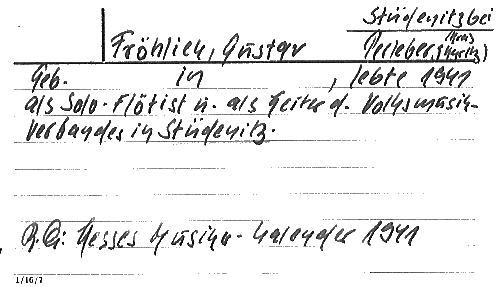 Stüdenitz bei
Fröhlich, Gustav Perleberg (Kreis Kyritz)
Geb. in , lebte 1941
als Solo-Flötist u. als Leiter d. Volksmusik-
verbandes in Stüdenitz.
R.Qu: Hesses Musiker-Kalender 1941
1/16/7